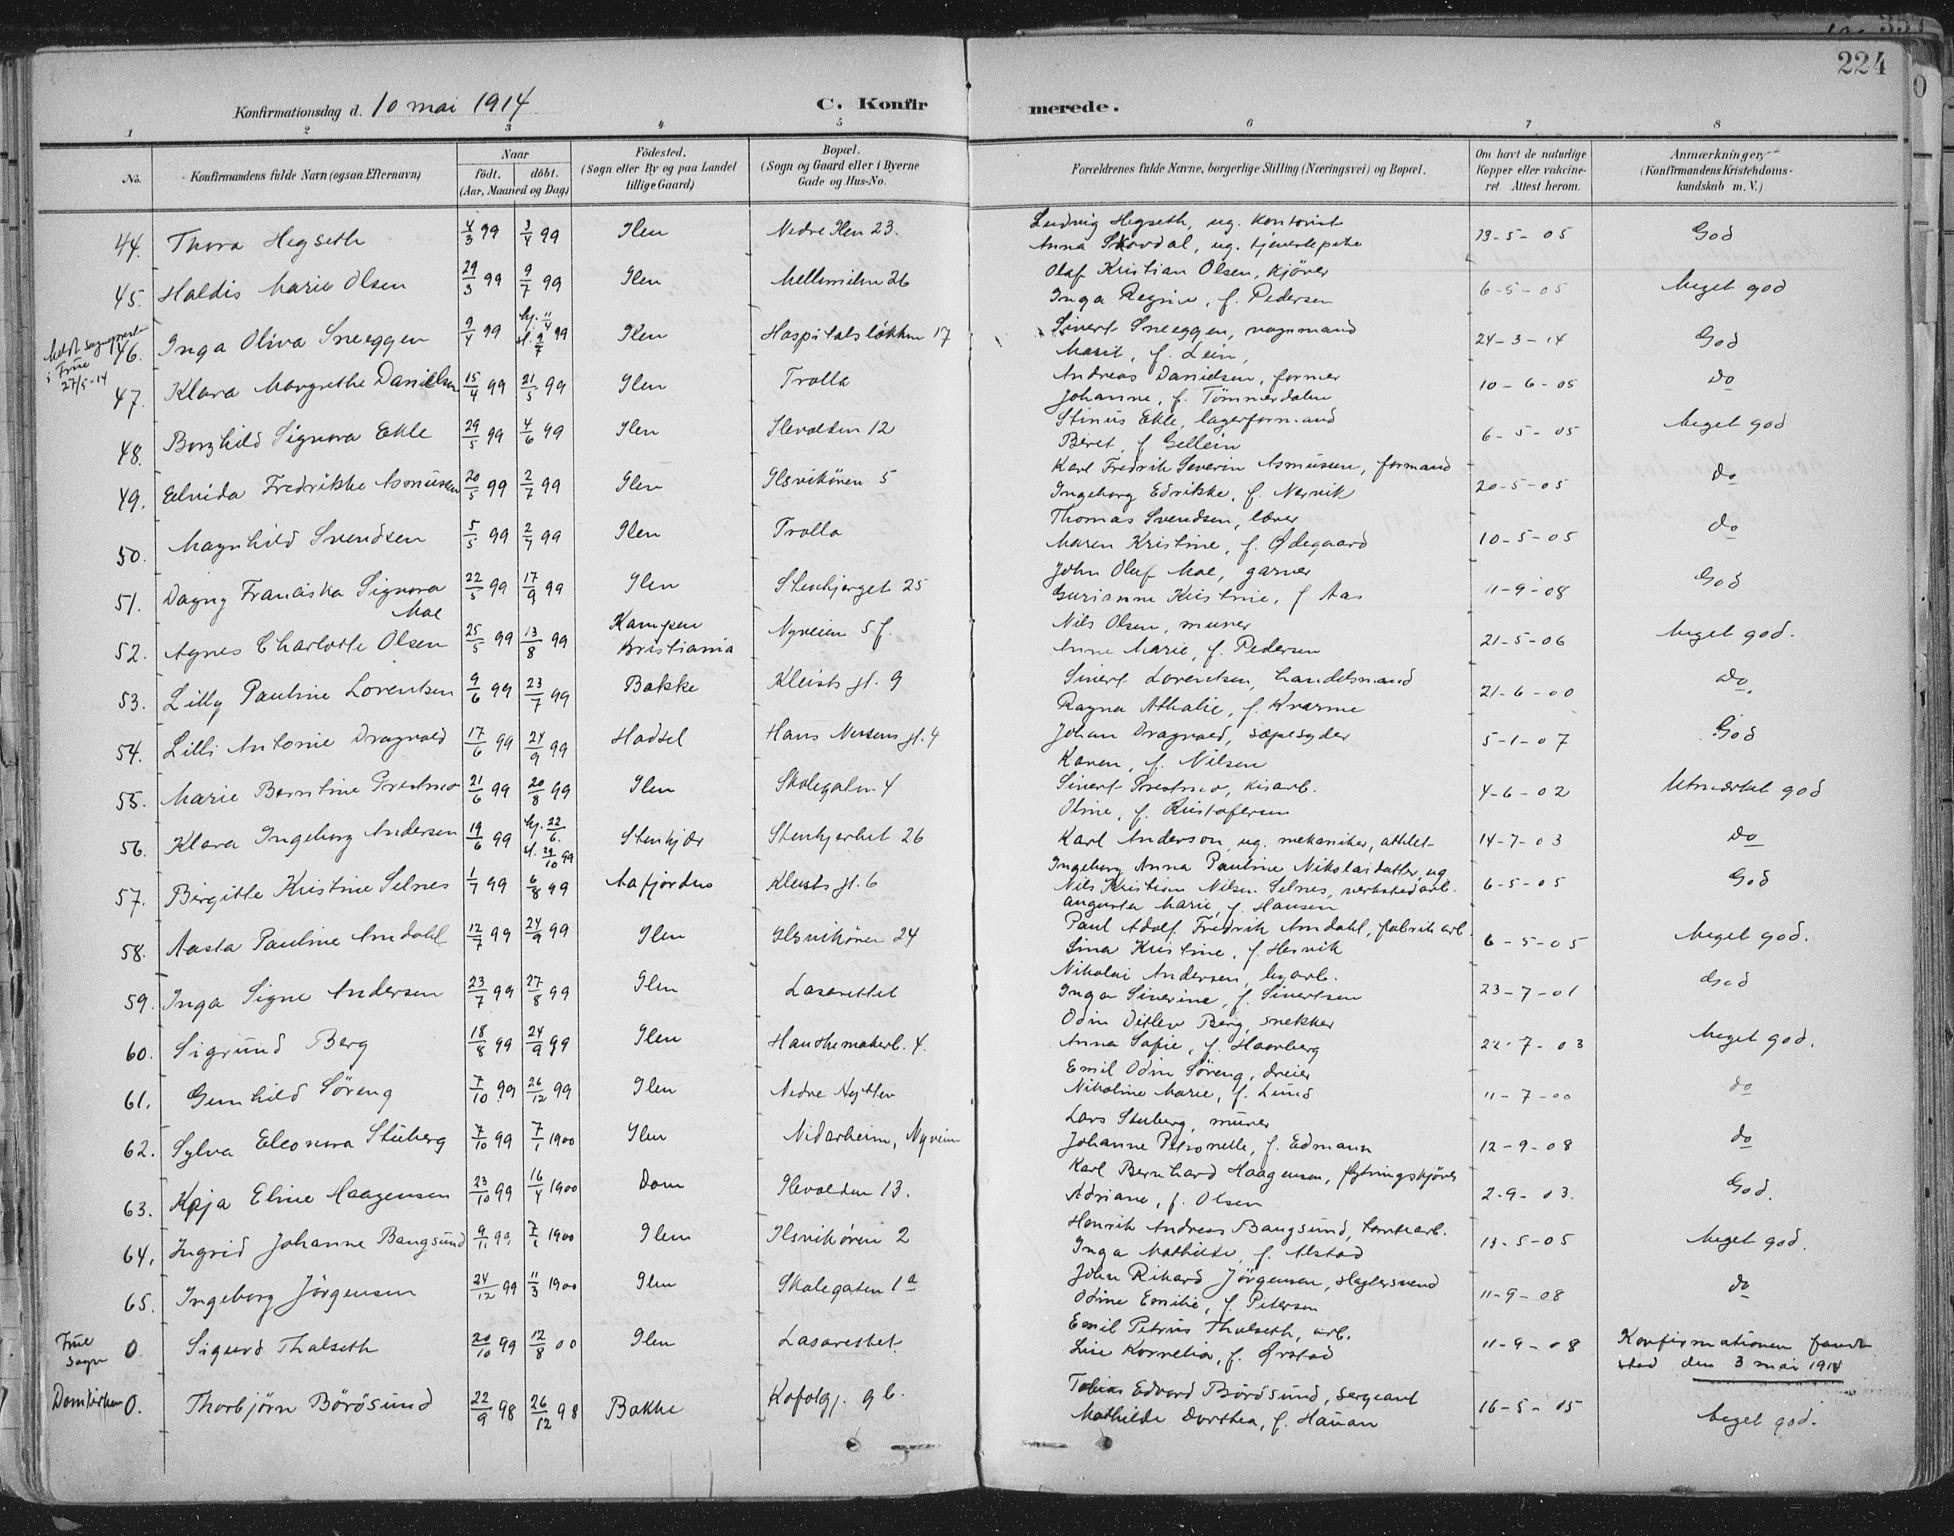 224
Konfirmationsdag d. 10 mai 1914
C. Konfirmerede.
1 2 3 4 5 6 7 8
No. Konfirmandens fulde Navn (ogsaa Efternavn) Naar født. døbt. (Aar, Maaned og Dag) Födested. (Sogn eller By og paa Landet tillige Gaard) Bopæl. (Sogn og Gaard eller i Byerne Gade og Hus-No. Forældrenes fulde Navne, borgerlige Stilling (Næringsvei) og Bopæl. Om havt de naturlige Kopper eller vakcineret. Attest herom. Anmærkninger, (Konfirmandens Kristendomskundskab m. V.)
44. Thora Hegseth 4/3 99 3/4 99 Ilen Nedre Ilen 23. Ludvig Hegseth, ug. kontorist 13-5-05 God
Anna Skovdal, ug. tjenestepike
45. Haldis Marie Olsen 29/3 99 9/7 99 Ilen Mellemilen 26 Olaf Kristian Olsen, kjører 6-5-05 Meget god
Inga Regine, f. Pedersen
i Frue 27/5-14
46. Inga Oliva Sneeggen 9/4 99 hj. 11/4 st. 9/7 99 Ilen Hospitalsløkken 17 Sivert Sneeggen, vognmand 24-3-14 God
Marit, f. Lein,
47. Klara Margrethe Danielsen 15/4 99 21/5 99 Ilen Trolla Andreas Danielsen, former 10-6-05 do
Johanne, f. Tømmerdalen
48. Borghild Signora Ekle 29/5 99 4/6 99 Ilen Ilevolden 12 Stinus Ekle, lagerformand 6-5-05 Meget god
Beret, f. Gellein
49. Elvida Fredrikke Asmussen 20/5 99 2/7 99 Ilen Ilsvikøren 5 Karl Fredrik Severin Asmussen, formand 20-5-05 do
Ingeborg Edrikke, f. Nervik
50. Magnhild Svendsen 5/5 99 2/7 99 Ilen Trolla Thomas Svendsen, lærer 10-5-05 do
Maren Kristine, f. Ødegaard
51. Dagny Franciska Signora Moe 22/5 99 17/9 99 Ilen Stenbjerget 25 John Oluf Moe, garver 11-9-08 God
Gurianne Kristine, f Aas
52. Agnes Charlotte Olsen 25/5 99 13/8 99 Kampen Kristiania Nyveien 5 f. Nils Olsen, murer 21-5-06 Meget god.
Anne Marie, f. Pedersen
53. Lilly Pauline Lorentsen 9/6 99 23/7 99 Bakke Kleists gt. 9 Sivert Lorentsen, handelsmand 21-6-00 do.
Ragna Athalie, f. Kvarme
54. Lilli Antonie Dragvold 17/6 99 24/9 99 Hadsel Hans Nissens gt. 4 Johan Dragvold, sæpesyder 5-1-07 God
Karen, f. Nilsen
55. Marie Berntine Prestmo 21/6 99 20/8 99 Ilen Skolegaten 4 Sivert Prestmo, kisarb. 4-6-02 Utmerket god
Oline, f. Kristofersen
56. Klara Ingeborg Andersen 19/6 99 hj. 22/6. st. 29/10 99 Stenkjær Stenbjerket 26 Karl Anderson, ug. mekaniker, athlet 14-7-03 do
Ingeborg Anna Pauline Nikolaidatter, ug
57. Birgitte Kristine Selnes 1/7 99 6/8 99 Aafjorden Kleists gt. 6 Nils Kristian Nilsen Selnes, verkstedarb. 6-5-05 God
Augusta Marie, f. Hansen
58. Aasta Pauline Amdahl 12/7 99 24/9 99 Ilen Ilsvikøren 24 Paul Adolf Fredrik Amdahl, fabrikarb. 6-5-05 Meget god.
Lina Kristine, f. Hesvik
59. Inga Signe Andersen 23/7 99 27/8 99 Ilen Lasarettet Nikolai Andersen, byarb. 23-7-01 God
Inga Siverine, f. Sivertsen
60. Sigrund Berg 18/8 99 24/9 99 Ilen Hanskemakerb. 4. Odin Ditlev Berg, snekker 22-7-03 Meget god.
Anna Sofie, f. Haarberg
61. Gunhild Søreng 7/10 99 26/12 99 Ilen Nedre Hytten Emil Odin Søreng, dreier 11-7-00 do
Nikoline Marie, f. Lund
62. Sylva Eleonora Stuberg 7/10 99 7/1 1900 Ilen Nidarheim, Nyveien Lars Stuberg, murer 12-9-08 do
Johanne Petronelle, f. Edmann
63. Kaja Eline Haagensen 23/10 99 16/4 1900 Dom Ilevolden 13. Karl Bernhard Haagensen, flytningskjører 2-9-03. God.
Adriane, f. Olsen
64. Ingrid Johanne Bangsund 9/11 99. 7/1 1900 Ilen Ilsvikøren 2 Henrik Andreas Bangsund, tomtearb. 13-5-05 Meget god.
Inga Mathilde, f. Alstad
65. Ingeborg Jørgensen 24/12 99 11/3 1900 Ilen Skolegaten 1a John Rikard Jørgensen, Høglersvend 11-9-08 do
Odine Emilie, f. Petersen
Frue sogn 0 Sigurd Thalseth 20/10 99 12/8 00 Ilen Lasarettet Emil Petrus Thalseth, arb. 11-9-08 Konfirmationen fandt sted den 3 mai 1914
Lise Kornelia, f. Ørstad
Domkirken 0. Thorbjørn Börösund 22/9 98 26/12 98 Bakke Kofotgj. 9 b. Tobias Edvard Börösund, sergeant 16-5-05 Meget god.
Mathilde Dorthea, f. Hauan